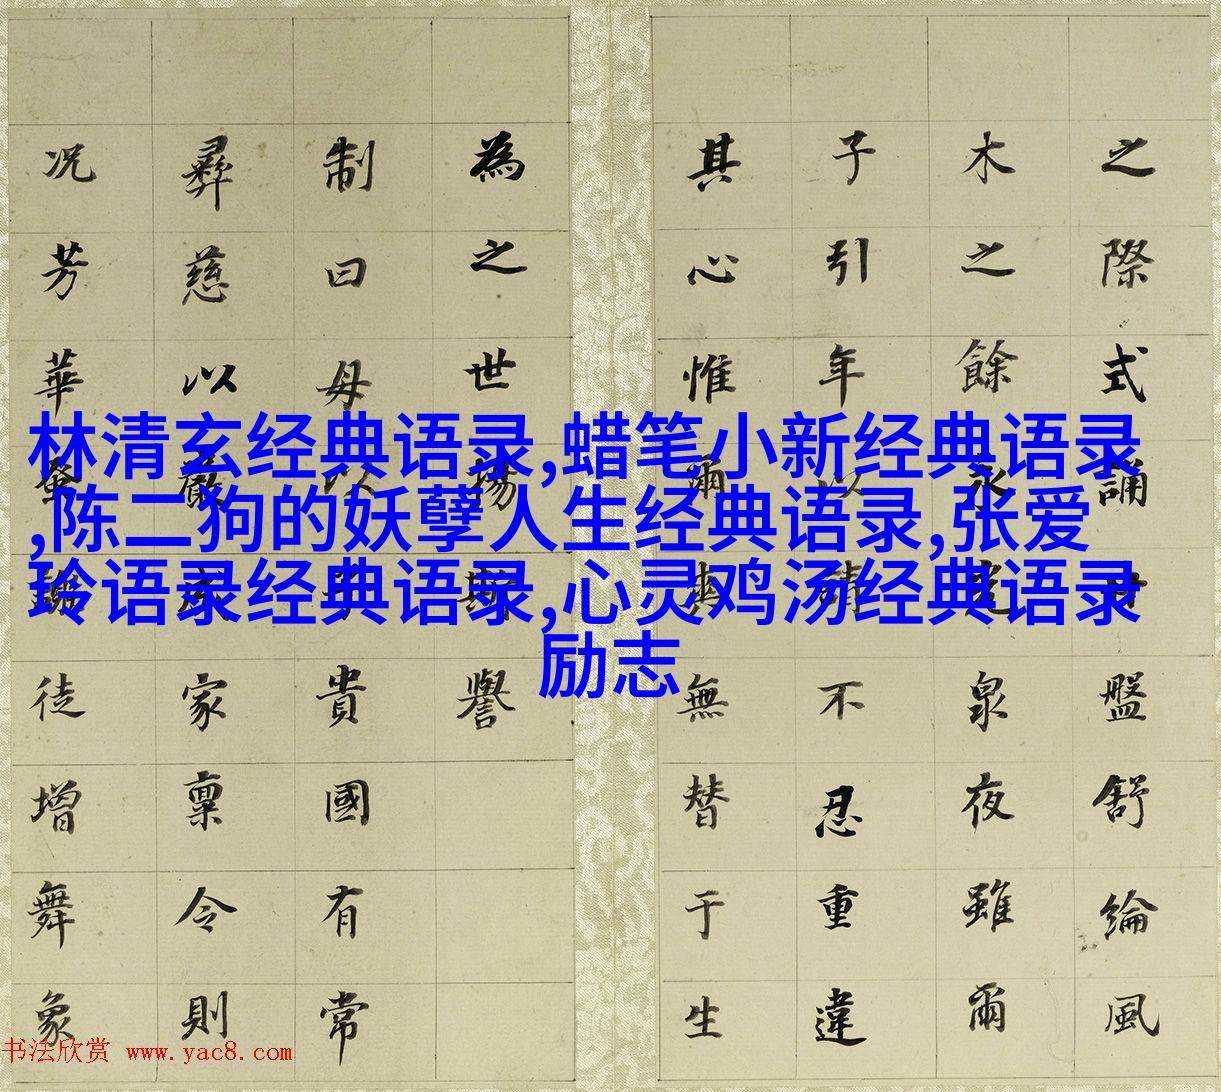 之際式誦盤舒綸風
木之餘永泉夜雖爾
子引年以不忍重違
其心惟爾無替于生
為之世揚斯譽
制曰母以子貴國有常
彝慈以嚴家稟令則
況芳華徒增舞象
林清玄经典语录,蜡笔小新经典语录
,陈二狗的妖孽人生经典语录,张爱
玲语录经典语录,心灵鸡汤经典语录
励志
书法欣赏 www.yac8.com